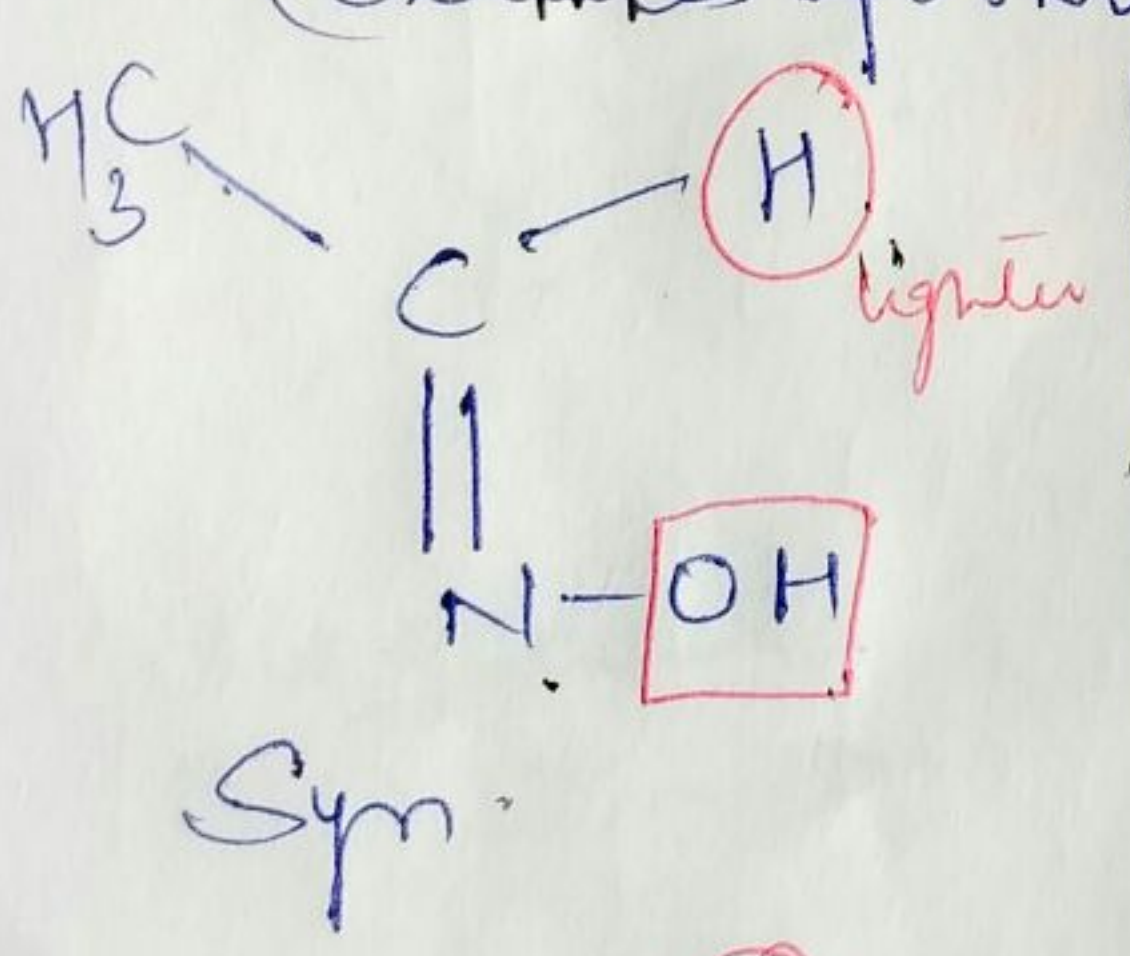 H3C H
lighter
C
N-OH
Syn